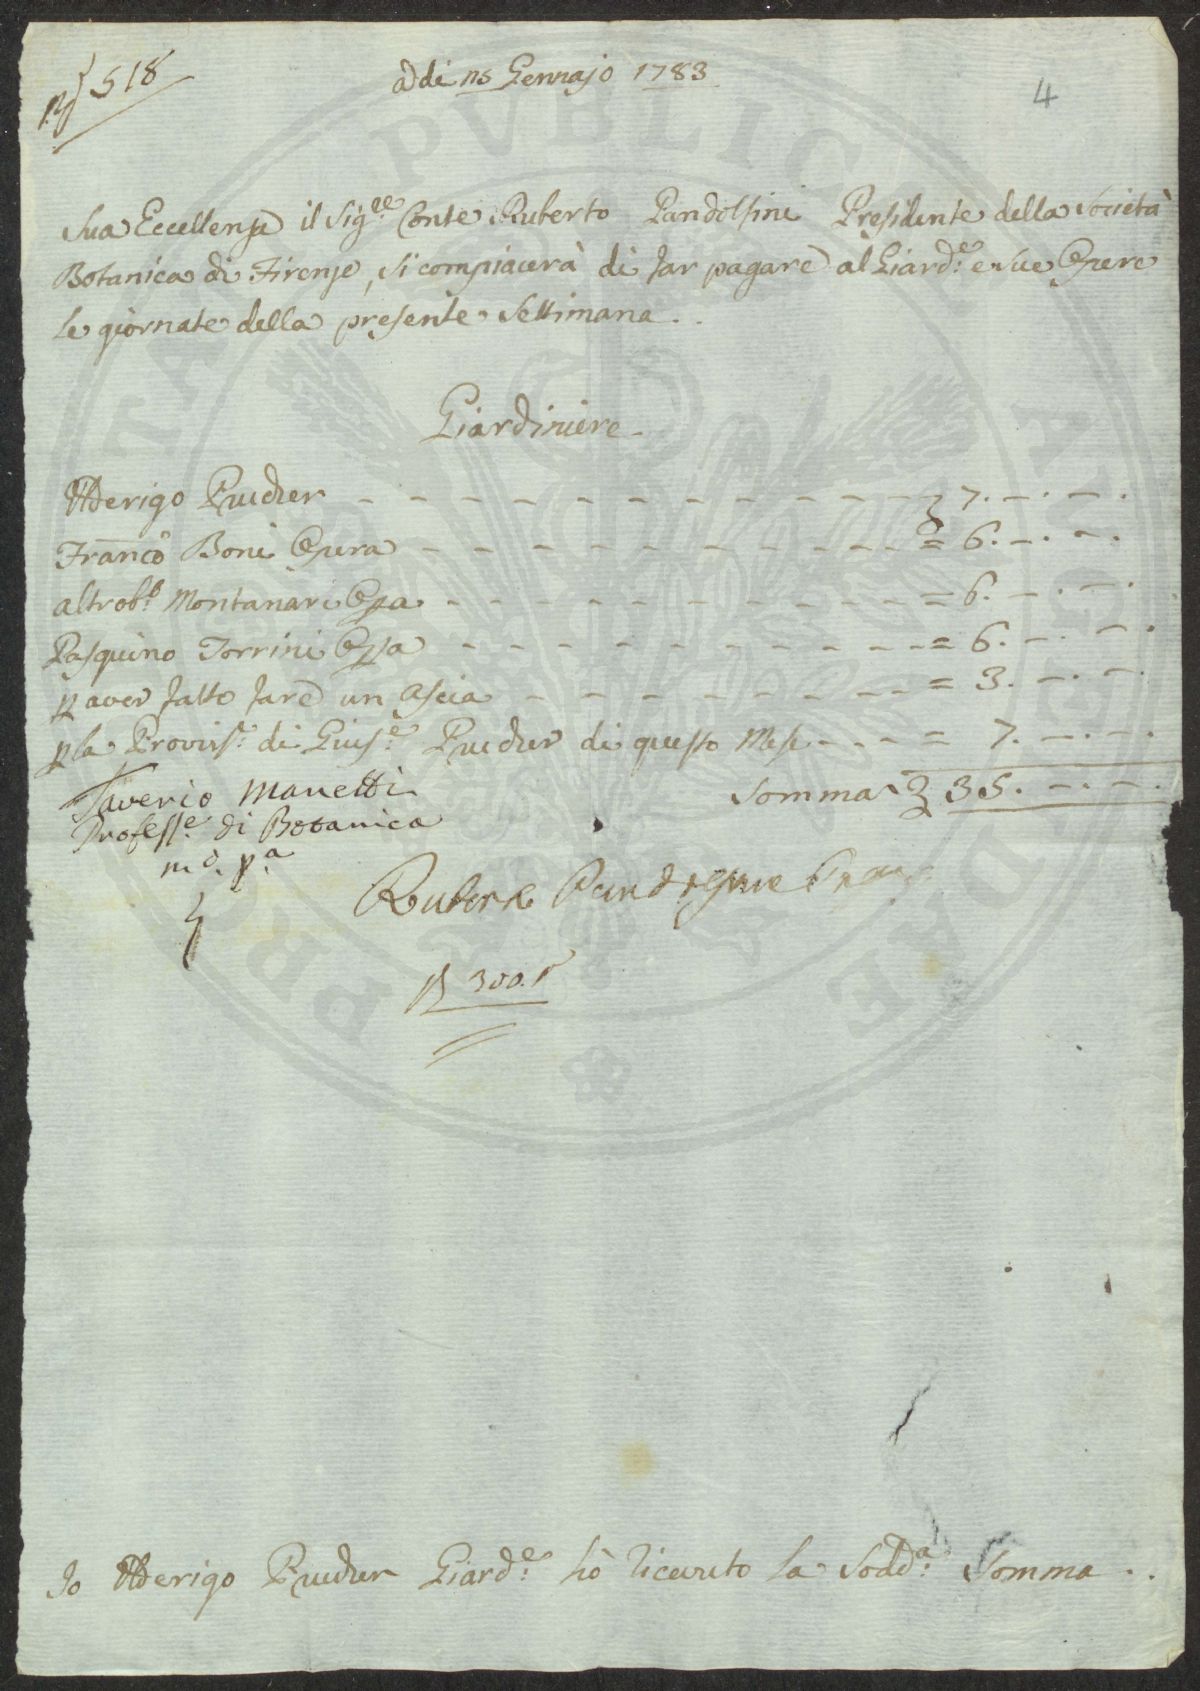 518
addi 25 Gennajo 1783
4
Sua Eccellenza il Sig.re Conte Ruberto Pandolfini Presidente della Società
Botanica di Firenze, si compiacerà di far pagare al Giard.e e sue Opere
le giornate della presente Settimana.
Giardiniere
Aderigo Prucher - - - - - - - - - - - 7. -. -.
Franco Boni Opera - - - - - - - - - - = 6. -. -.
altrob.o Montanari Opa - - - - - - - - - = 6. -. -.
Pasquino Torrini Opa - - - - - - - - = 6. -. -.
p aver fatto fare un Ascia - - - - - - - = 3. -. -.
p la Provvis.e di Gius.e Prucher di questo Mese - - - = 7. -. -.
Saverio Manetti
Somma 35. -. -.
Profess.e di Botanica
m.o p.a
Ruberto Pandolfini
300.
Io Aderigo Prucher Giard.e hò riceuto la Sodd.a Somma..
PROPRIETÀ PVBLICA AVGET